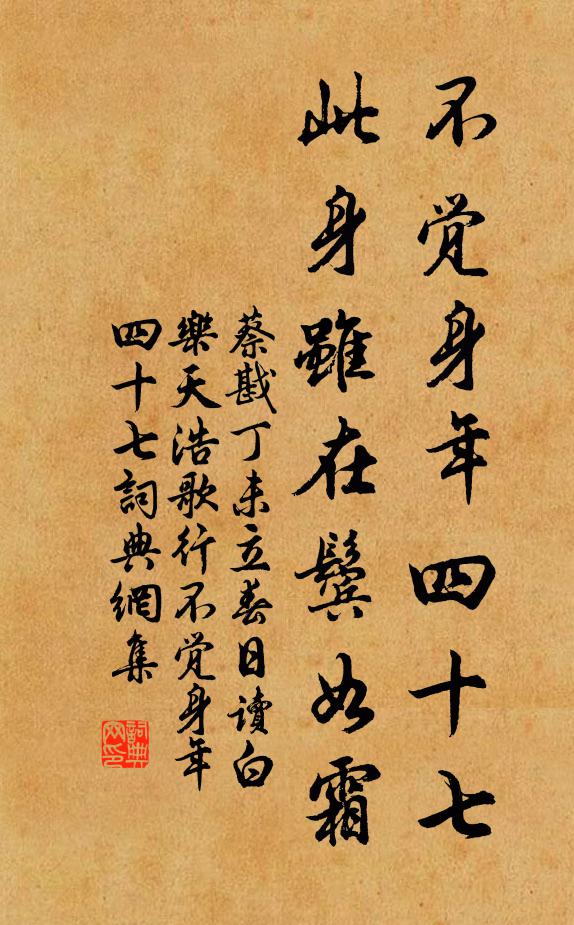 不觉身年四十七
此身雖在鬓如霜
蔡戡丁未立春日讀白
樂天浩歌行不觉身年
四十七詞典網集
詞典
网印